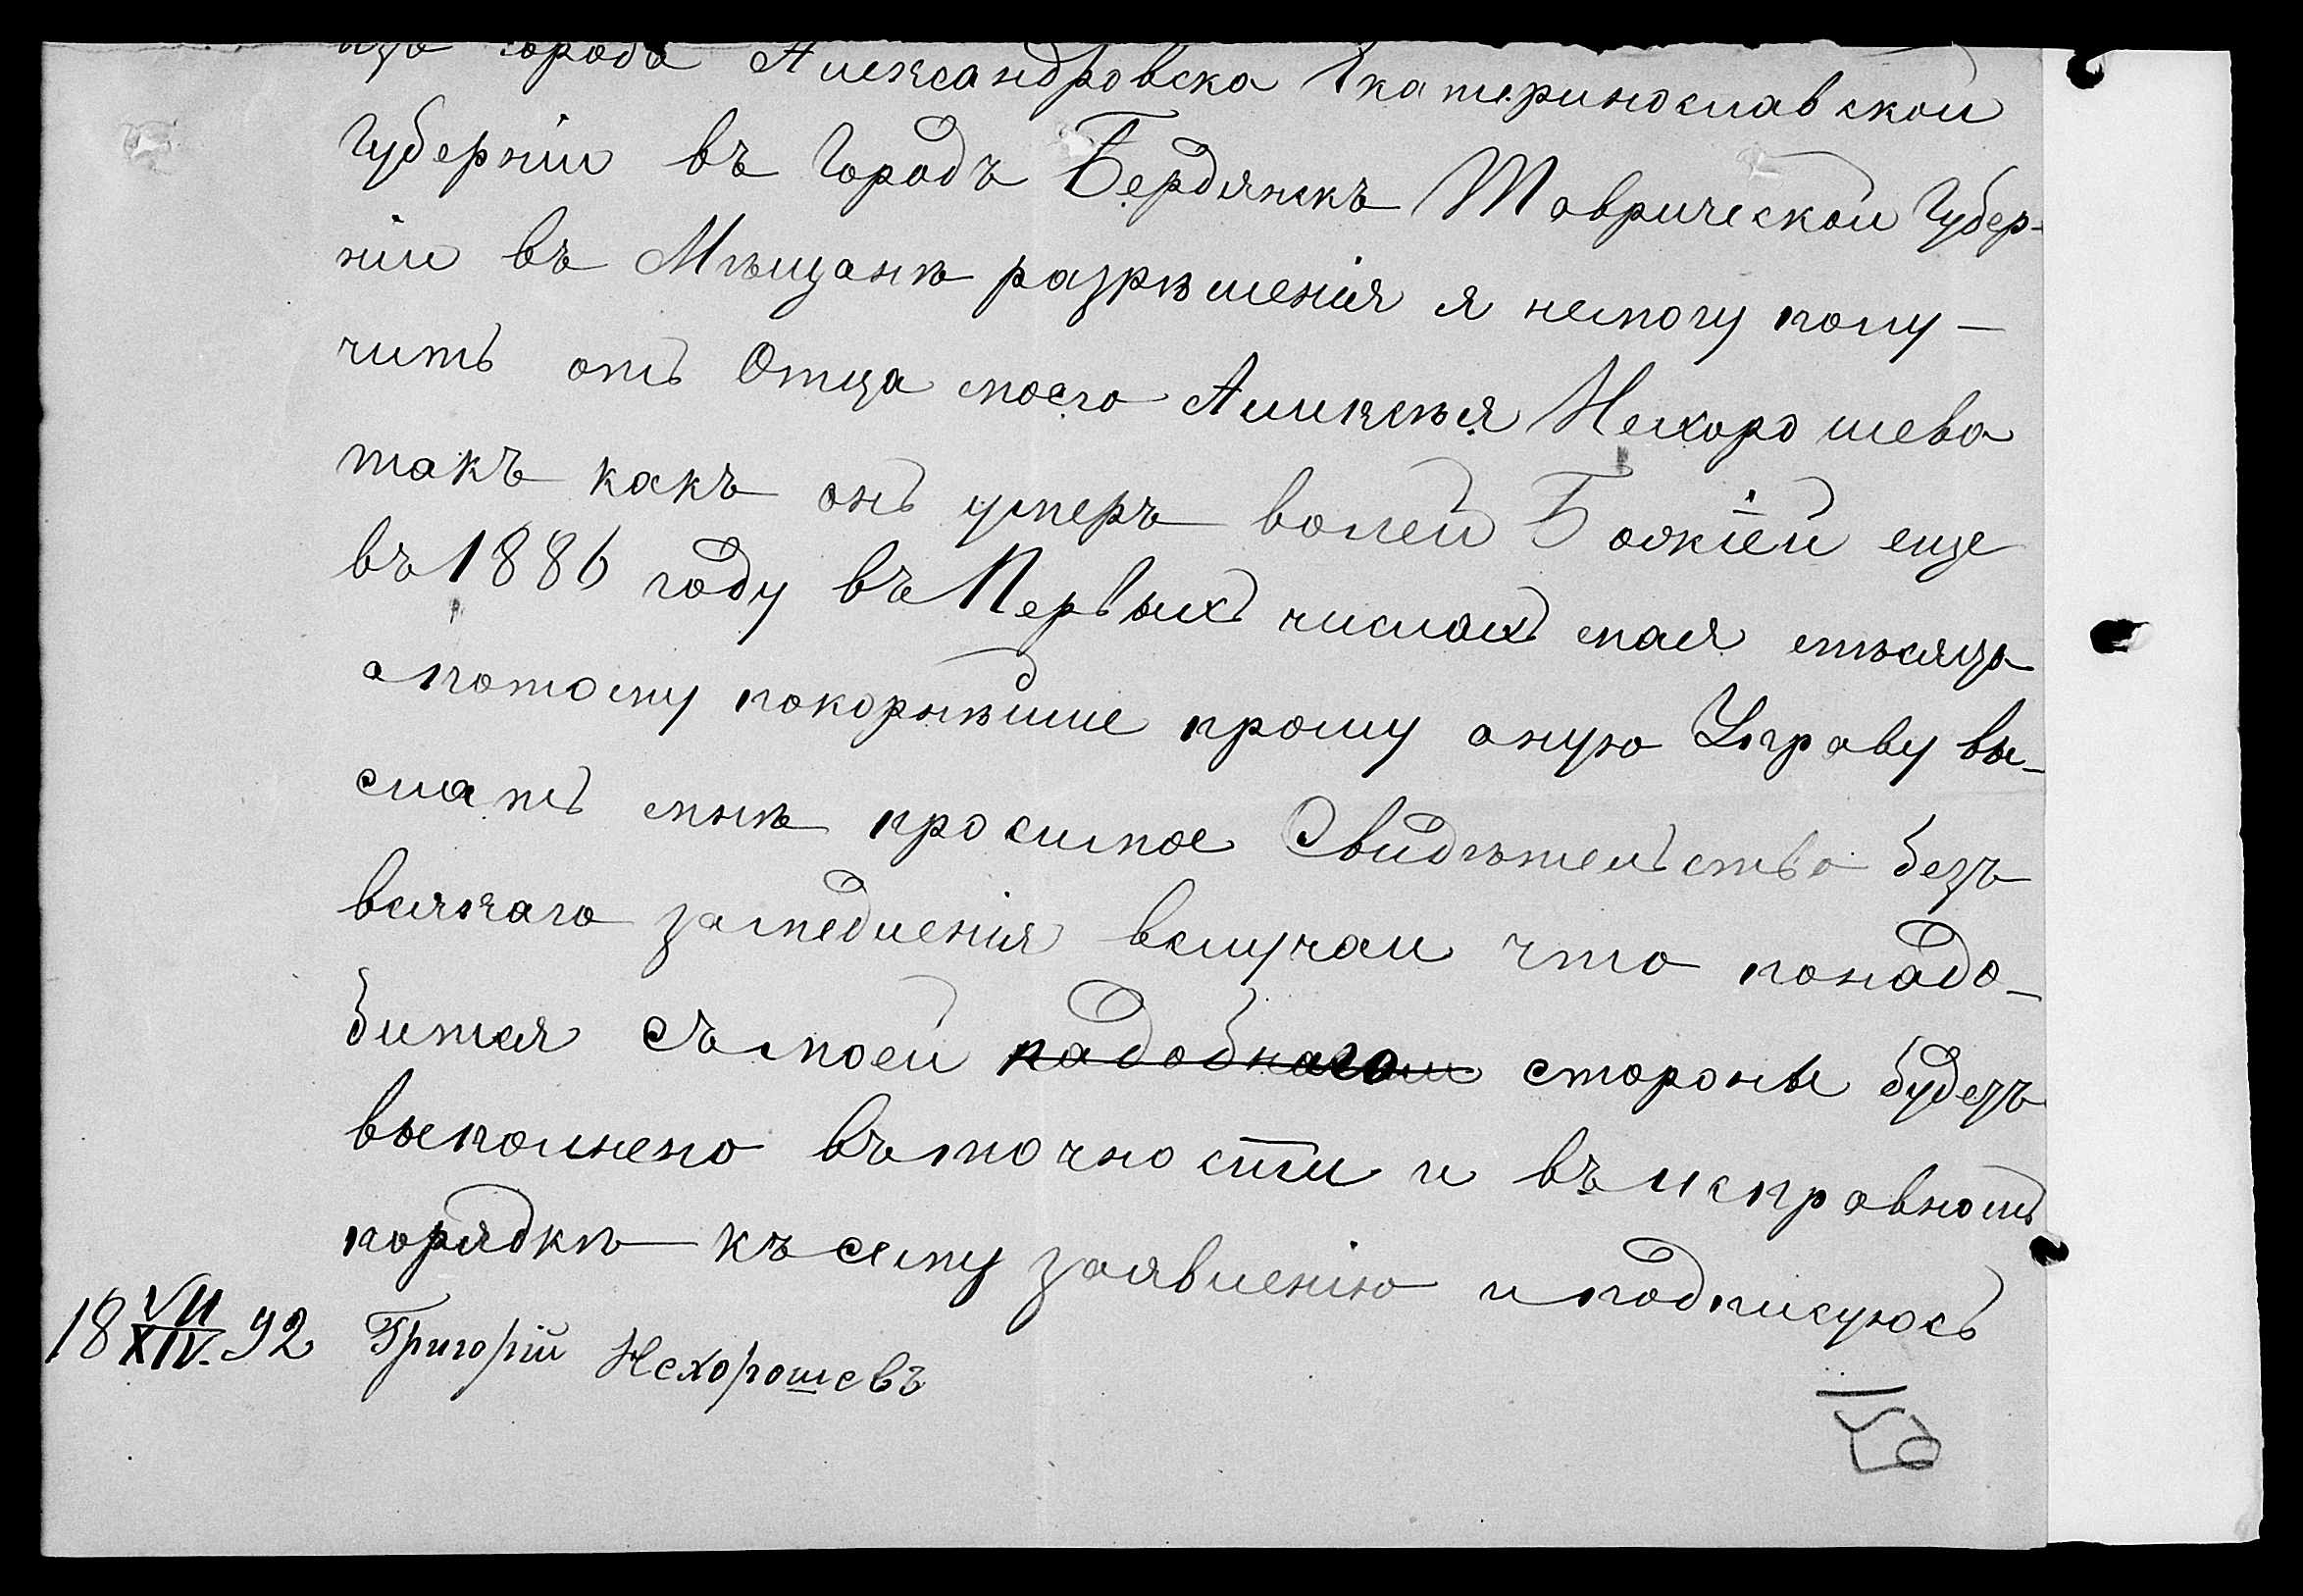 изъ города Александровска Екатеринославской
Губерніи въ Городъ Бердянскъ Таврической Губер-
ніи въ Мѣщанѣ разрѣшенія я немогу полу-
чить отъ Отца моего Аликсѣя Нехорошева
такъ какъ онъ умперъ волей Божіей еще
въ 1886 году въ Первыхъ числахъ мая мѣсяца
а потому покорнѣише прошу оную Управу вы-
слать мнѣ просимое Свидѣтельство безъ
всякаго замедленія вслучаи что понадо-
бится съ моей стороны будетъ
выполнено въ точности и въ исправность
порядкѣ къ сему заявленію и подписуюсь
18 VII/XIV. 92 Григорій Нехорошевъ